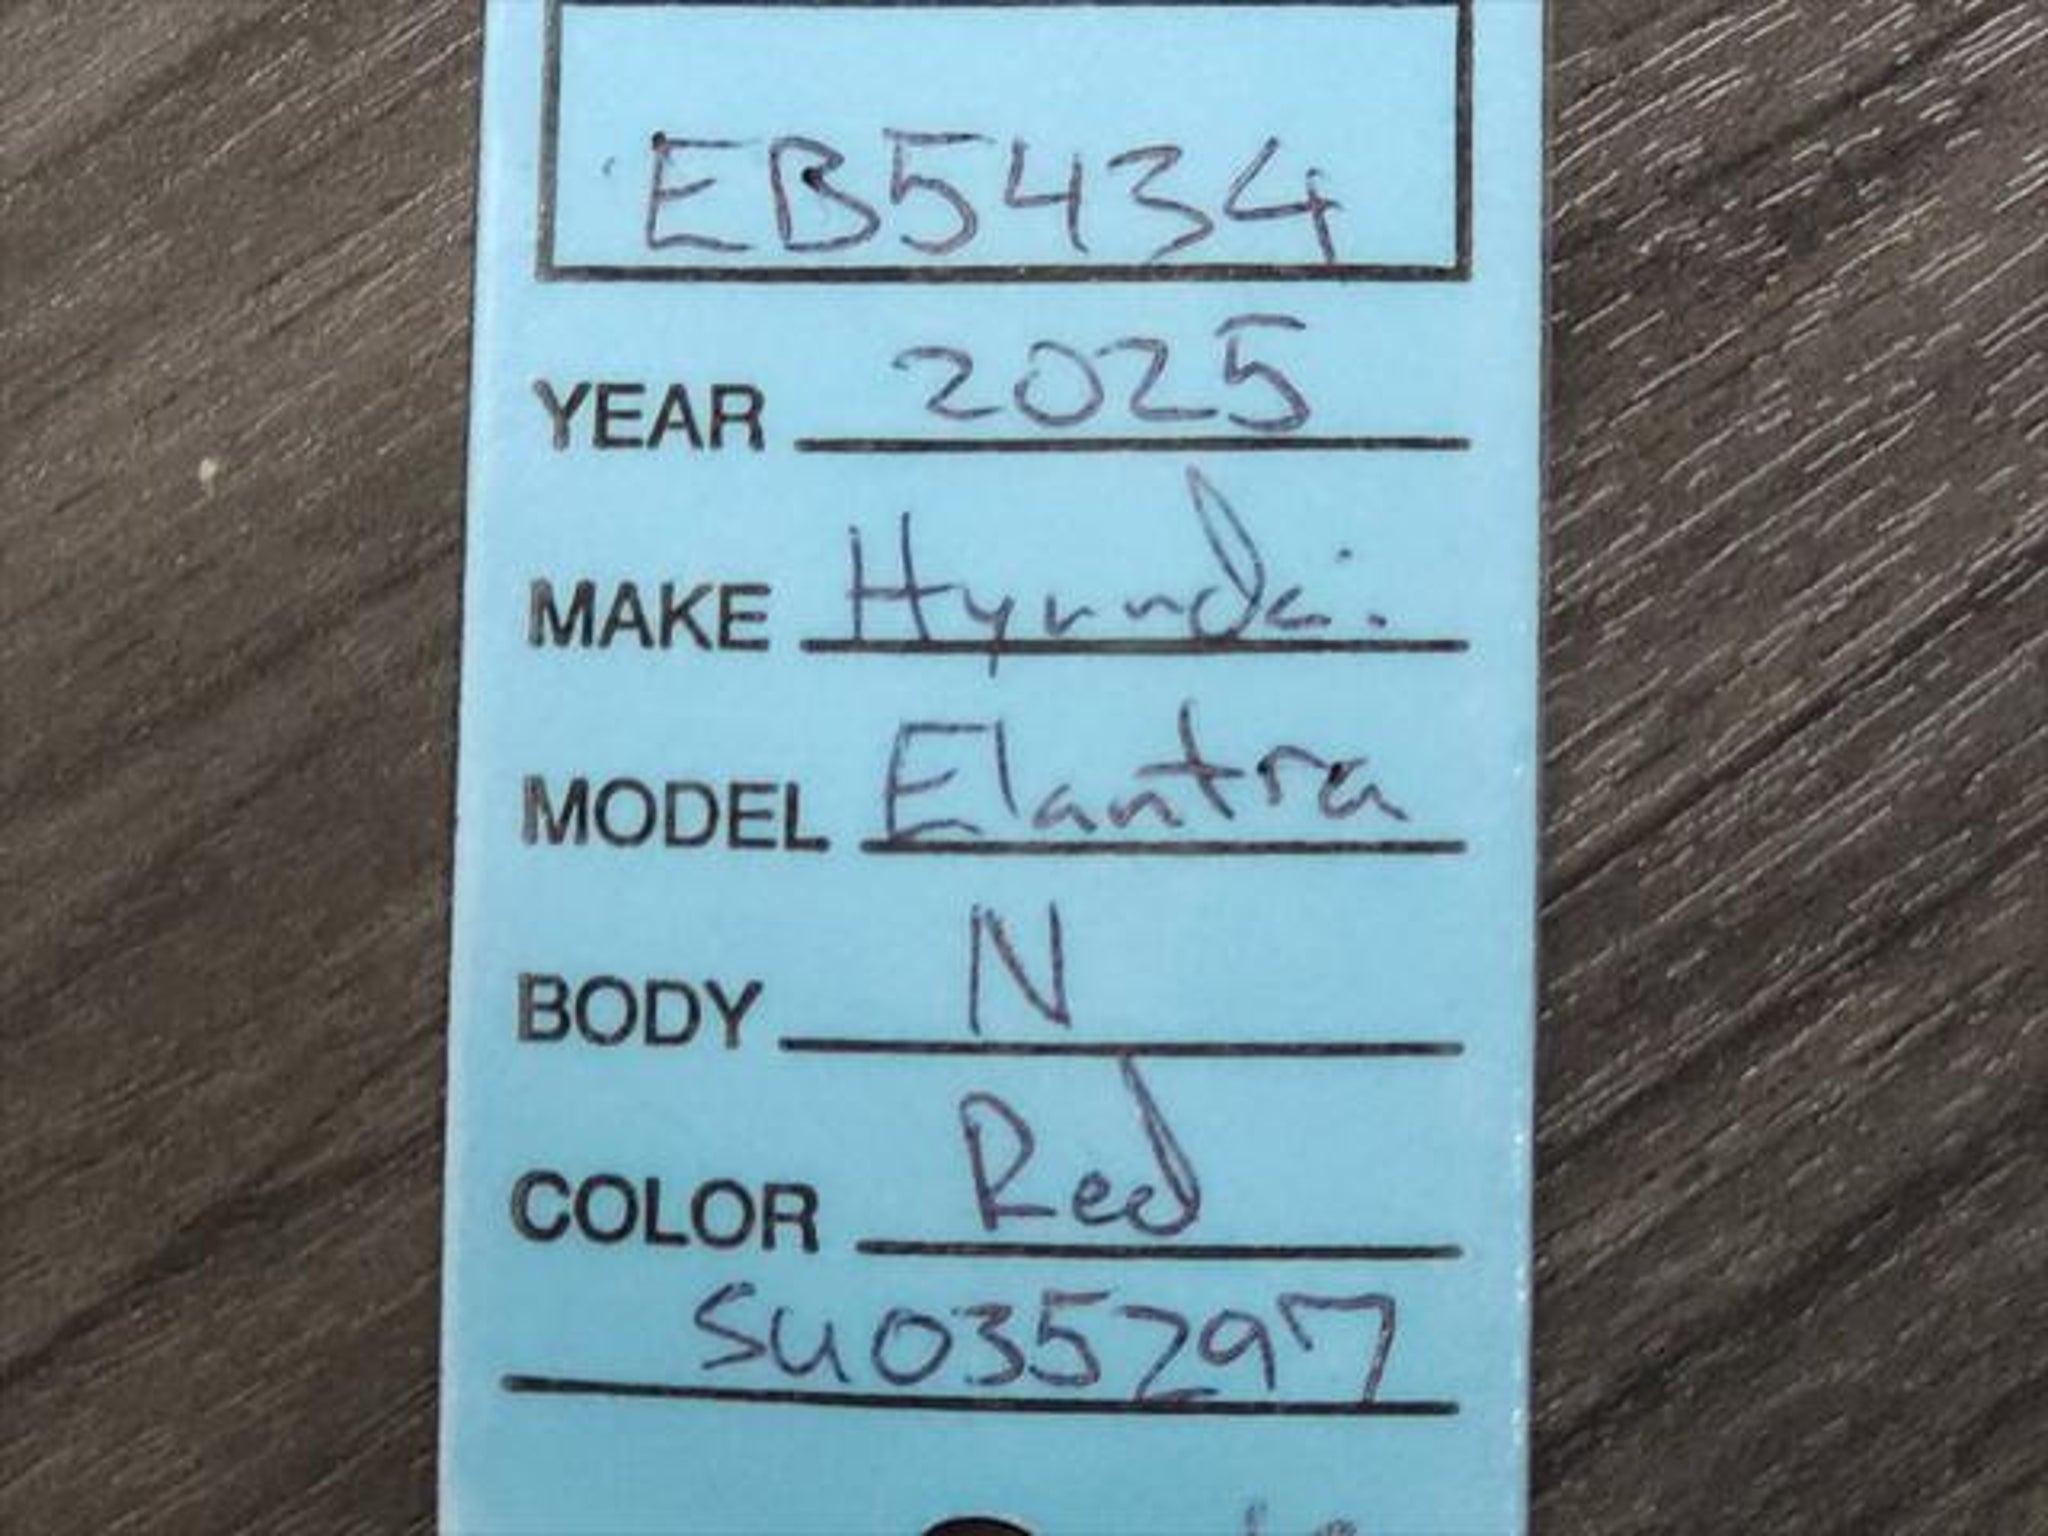 EB5434
YEAR 2025
MAKE Hyundai.
MODEL Elantra
BODY N
COLOR Red
SU035297